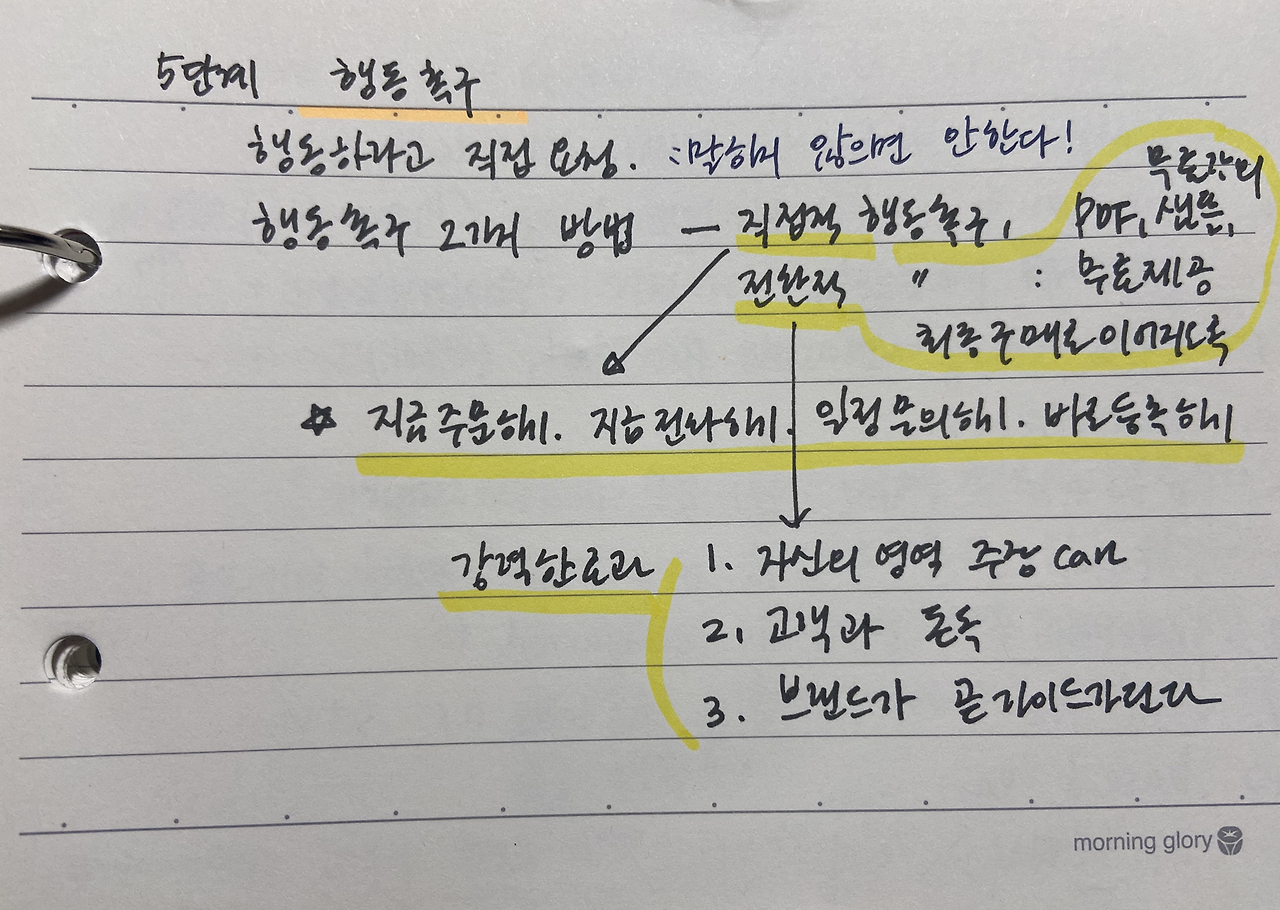 5단계 행동촉구
행동하라고 직접 요청. : 말하지 않으면 안한다!
무료강의
행동촉구 2가지 방법 - 직접적 행동촉구, PDF, 샘플,
전환적 〃 : 무료제공
최종구매로이어지도록
☆ 지금주문하기. 지금전화하기. 일정문의하기. 바로등록하기
강력한효과 1. 자신의 영역 주장 can
2. 고객과 돈독
3. 브랜드가 곧가이드가된다
morning glory